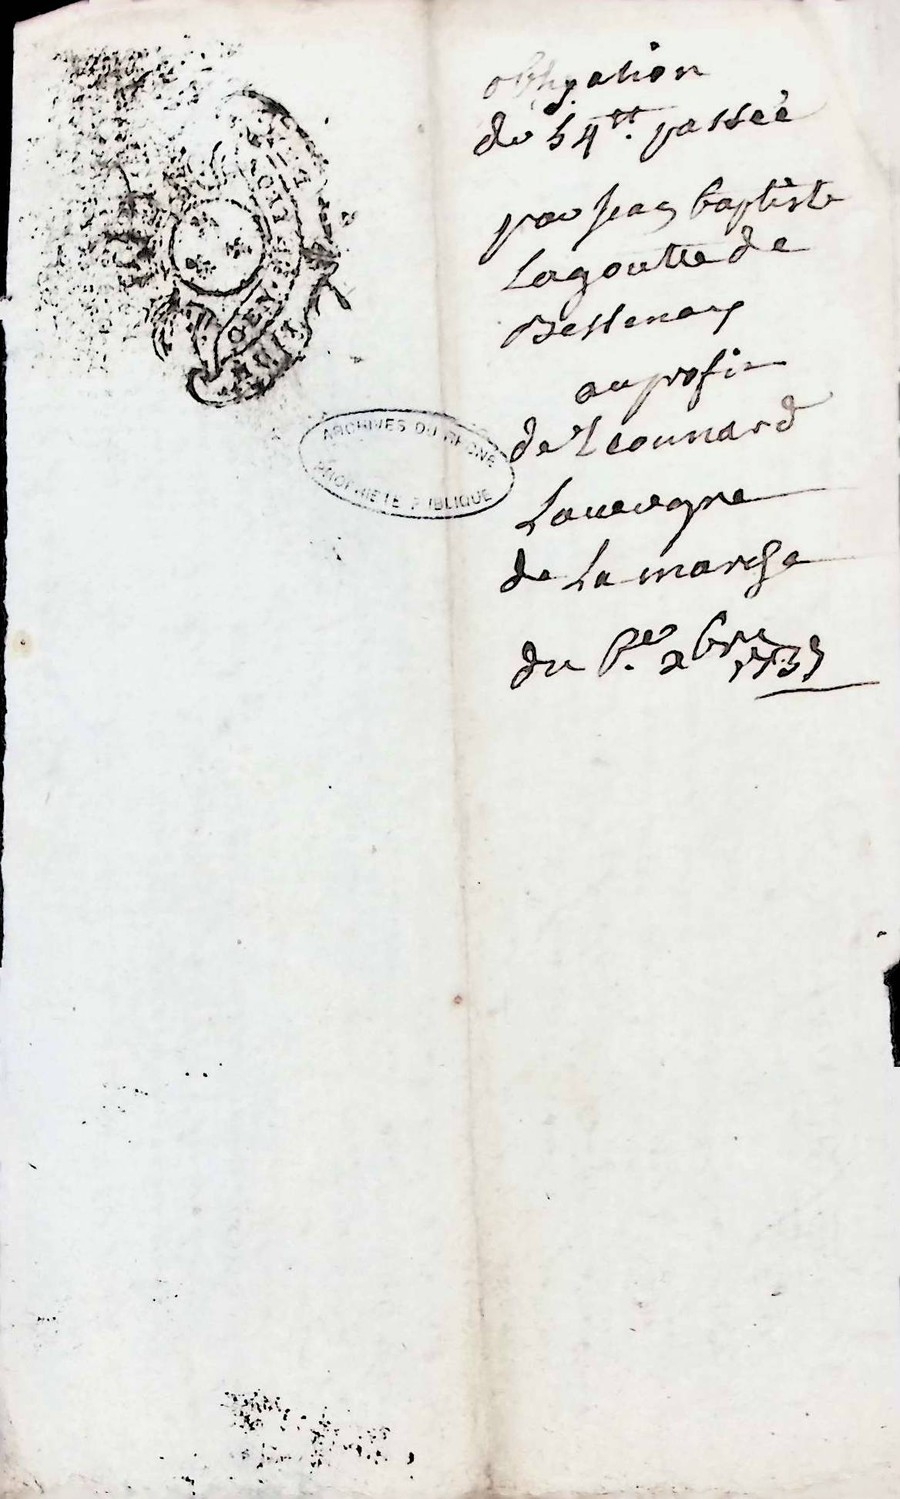 GEN
ARCHIVES DU RHONE
PROPRIETE PUBLIQUE
obligation
de 54tt passée
par Jean baptiste
Lagoutte de
Bessenay
au profit
de Leonnard
Lauvergne
de La marche
du Per xbre 1737